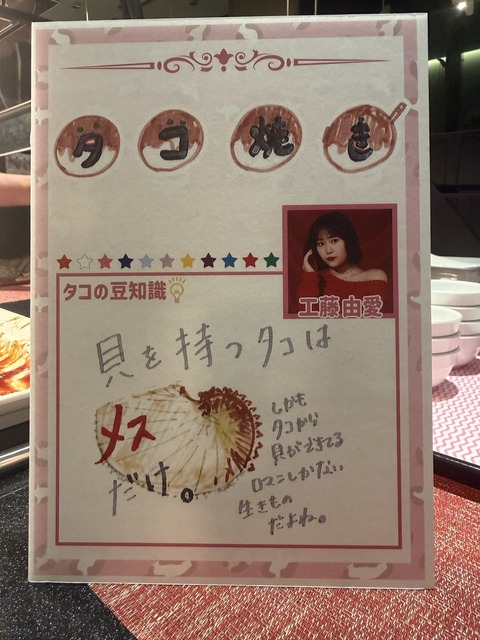 タコ焼き
タコの豆知識
工藤由愛
貝を持つタコは
メス
だけ。
しかも
タコから
貝ができてる
ロマンしかない
生きもの
だよね。